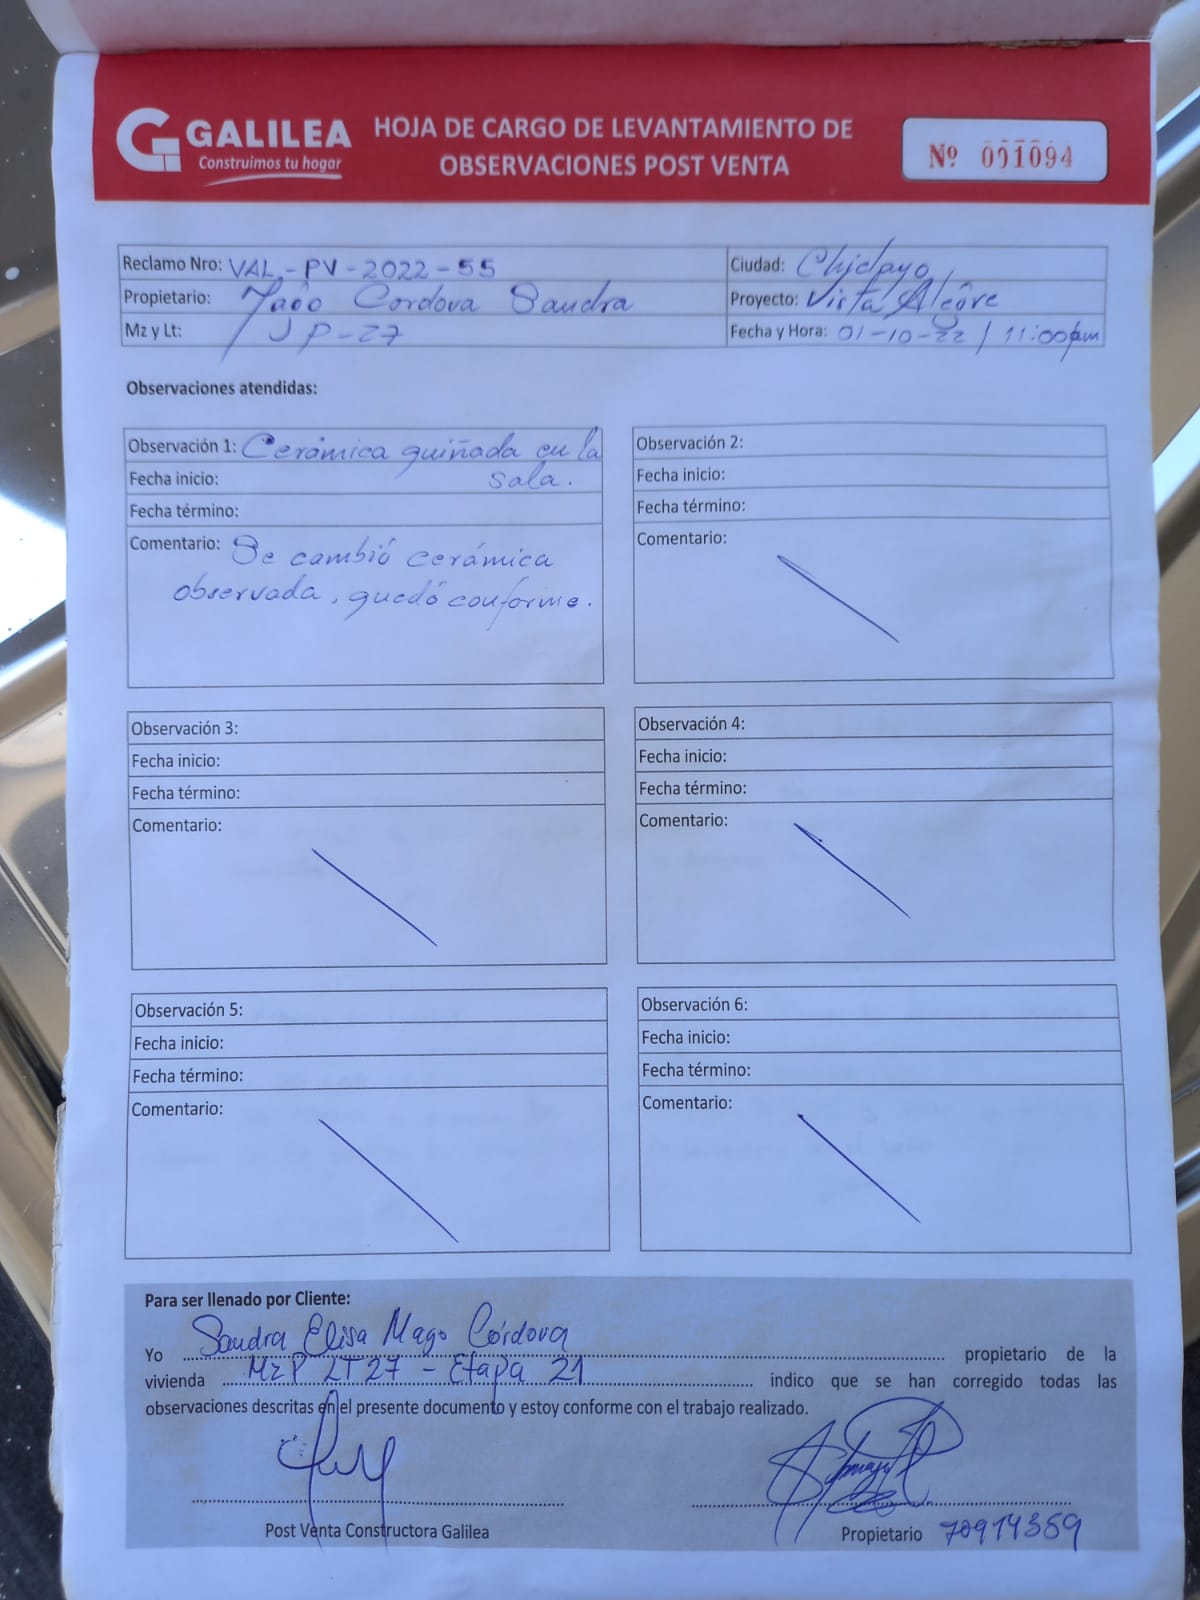 GALILEA
Construimos tu hogar
HOJA DE CARGO DE LEVANTAMIENTO DE
OBSERVACIONES POST VENTA
Nº 001094
Reclamo Nro: VAL-PV-2022-55
Ciudad: Chiclayo
Propietario: Mago Cordova Sandra
Proyecto: Vista Alegre
Mz y Lt: P-27
Fecha y Hora: 01-10-22 / 11:00am
Observaciones atendidas:
Observación 1: Cerámica guiñada en la
Fecha inicio: sala.
Fecha término:
Comentario: Se cambió cerámica
observada, quedó conforme.
Observación 2:
Fecha inicio:
Fecha término:
Comentario:
Observación 3:
Fecha inicio:
Fecha término:
Comentario:
Observación 4:
Fecha inicio:
Fecha término:
Comentario:
Observación 5:
Fecha inicio:
Fecha término:
Comentario:
Observación 6:
Fecha inicio:
Fecha término:
Comentario:
Para ser llenado por Cliente:
Yo Sandra Elisa Mago Córdova propietario de la
vivienda Mz P LT 27 - Etapa 21 indico que se han corregido todas las
observaciones descritas en el presente documento y estoy conforme con el trabajo realizado.
Post Venta Constructora Galilea
Propietario